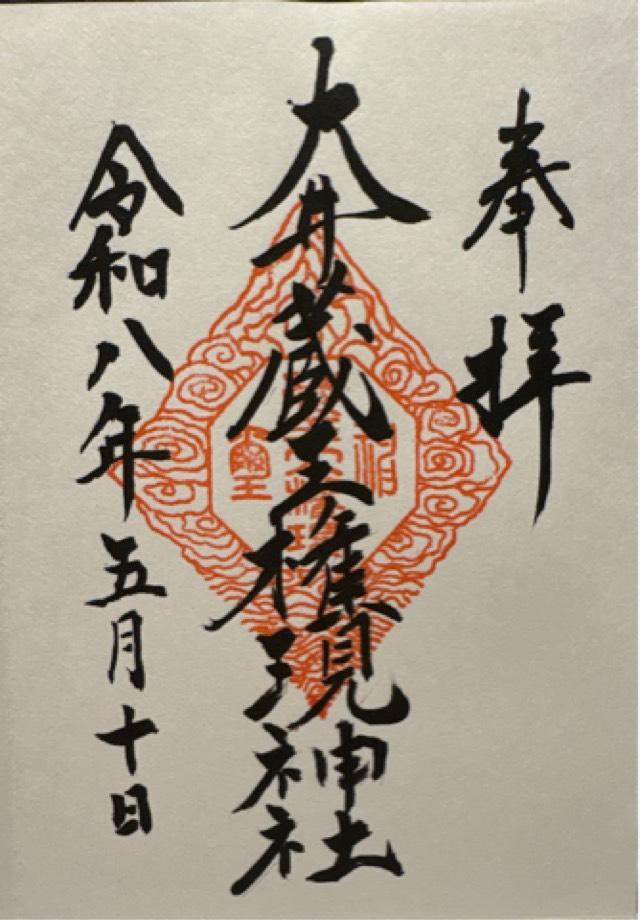 奉拝
大井蔵王権現神社
令和八年五月十日